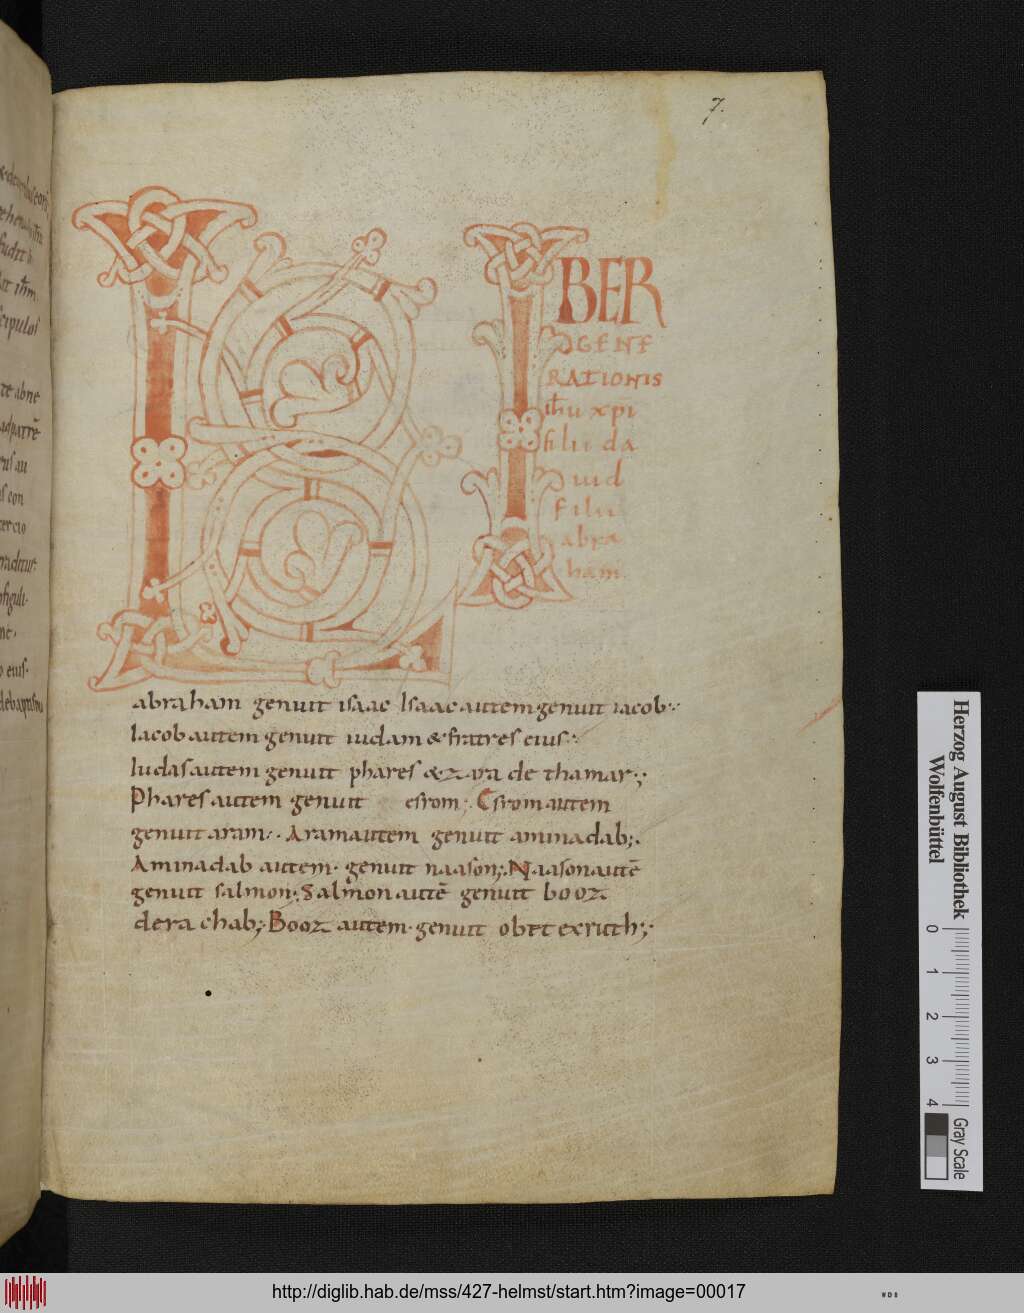 7.
LIBER
GENE
RATIONIS
ih̄u xp̄i
filii da
uid
filii
abra
ham.
abraham genuit isaac Isaac autem genuit iacob
Iacob autem genuit iudam & fratres eius
Iudas autem genuit phares & zara de thamar;
Phares autem genuit esrom; Esrom autem
genuit aram. Aram autem genuit aminadab;
Aminadab autem. genuit naason; Naason autē
genuit salmon; Salmon autē genuit booz
de rachab; Booz autem. genuit obet ex ruth;
te abne
ad patrē
eius.
Herzog August Bibliothek
Wolfenbüttel
0 1 2 3 4
Gray Scale
http://diglib.hab.de/mss/427-helmst/start.htm?image=00017